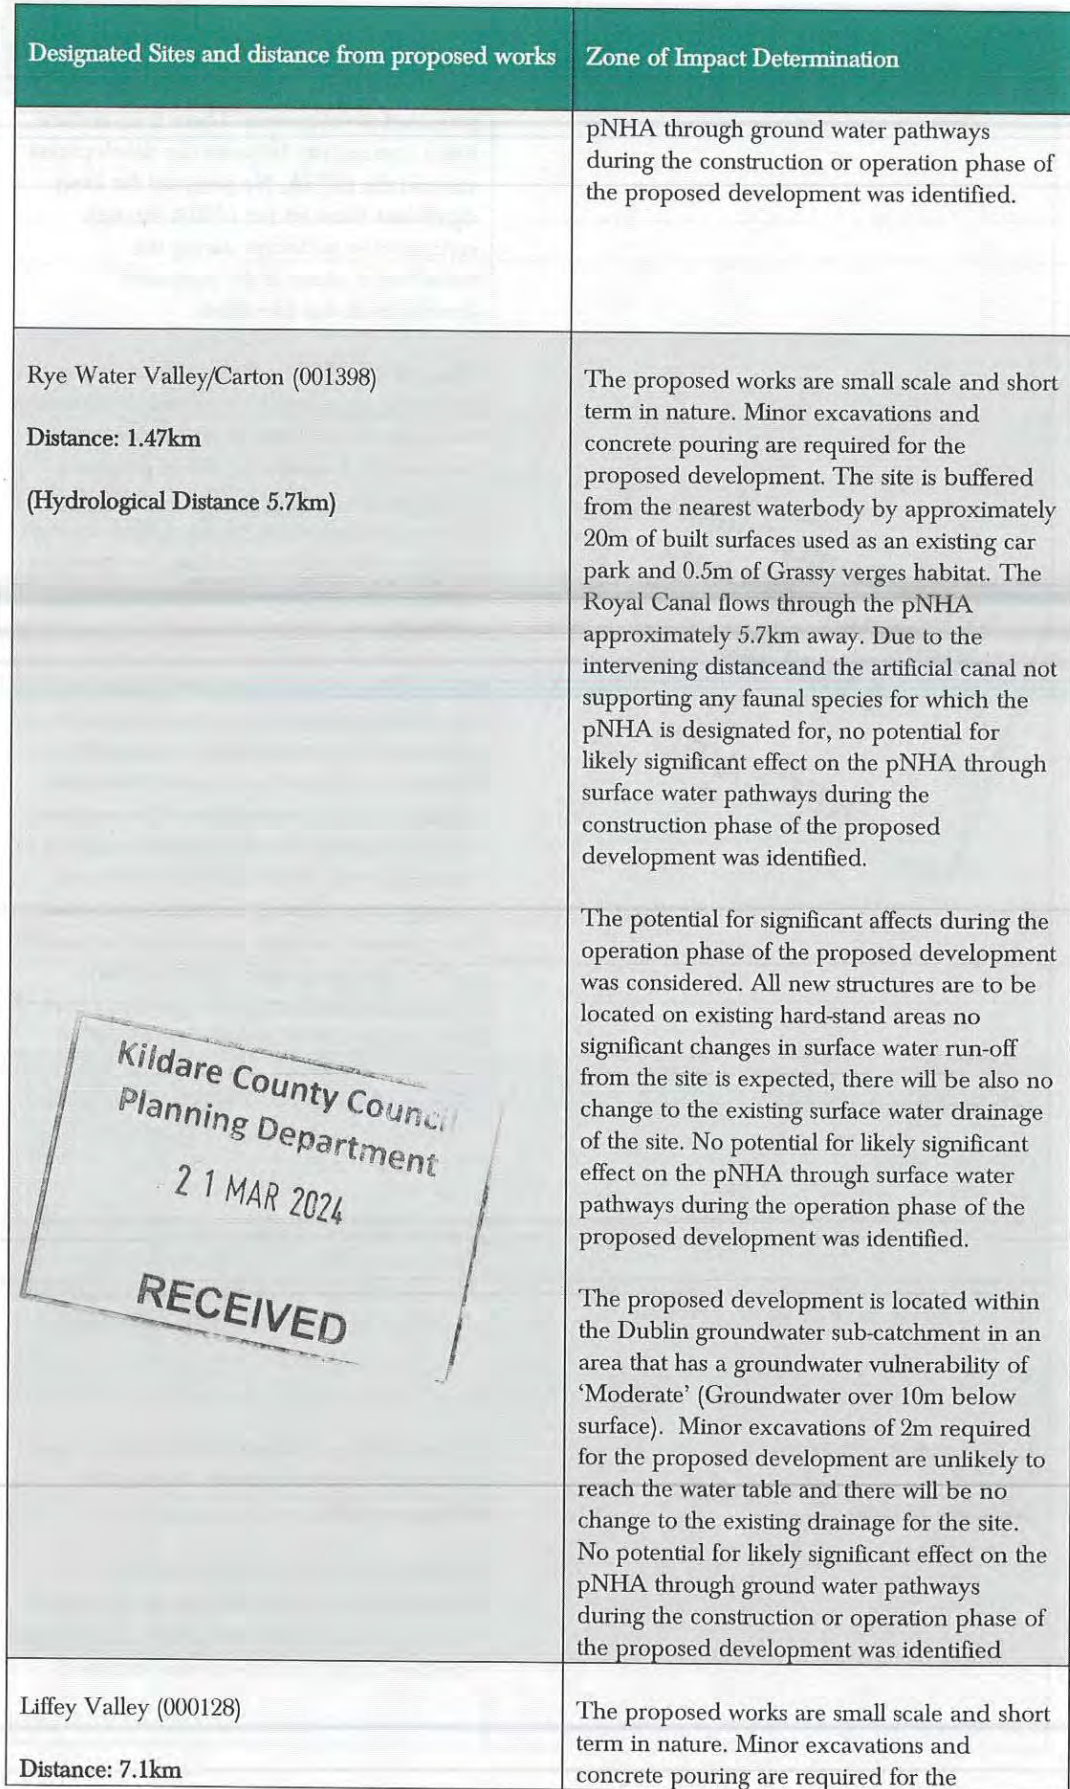 Designated Sites and distance from proposed works
Zone of Impact Determination
pNHA through ground water pathways
during the construction or operation phase of
the proposed development was identified.
Rye Water Valley/Carton (001398)
Distance: 1.47km
(Hydrological Distance 5.7km)
The proposed works are small scale and short
term in nature. Minor excavations and
concrete pouring are required for the
proposed development. The site is buffered
from the nearest waterbody by approximately
20m of built surfaces used as an existing car
park and 0.5m of Grassy verges habitat. The
Royal Canal flows through the pNHA
approximately 5.7km away. Due to the
intervening distanceand the artificial canal not
supporting any faunal species for which the
pNHA is designated for, no potential for
likely significant effect on the pNHA through
surface water pathways during the
construction phase of the proposed
development was identified.
The potential for significant affects during the
operation phase of the proposed development
was considered. All new structures are to be
located on existing hard-stand areas no
significant changes in surface water run-off
from the site is expected, there will be also no
change to the existing surface water drainage
of the site. No potential for likely significant
effect on the pNHA through surface water
pathways during the operation phase of the
proposed development was identified.
The proposed development is located within
the Dublin groundwater sub-catchment in an
area that has a groundwater vulnerability of
‘Moderate’ (Groundwater over 10m below
surface). Minor excavations of 2m required
for the proposed development are unlikely to
reach the water table and there will be no
change to the existing drainage for the site.
No potential for likely significant effect on the
pNHA through ground water pathways
during the construction or operation phase of
the proposed development was identified
Kildare County Council
Planning Department
21 MAR 2024
RECEIVED
Liffey Valley (000128)
Distance: 7.1km
The proposed works are small scale and short
term in nature. Minor excavations and
concrete pouring are required for the